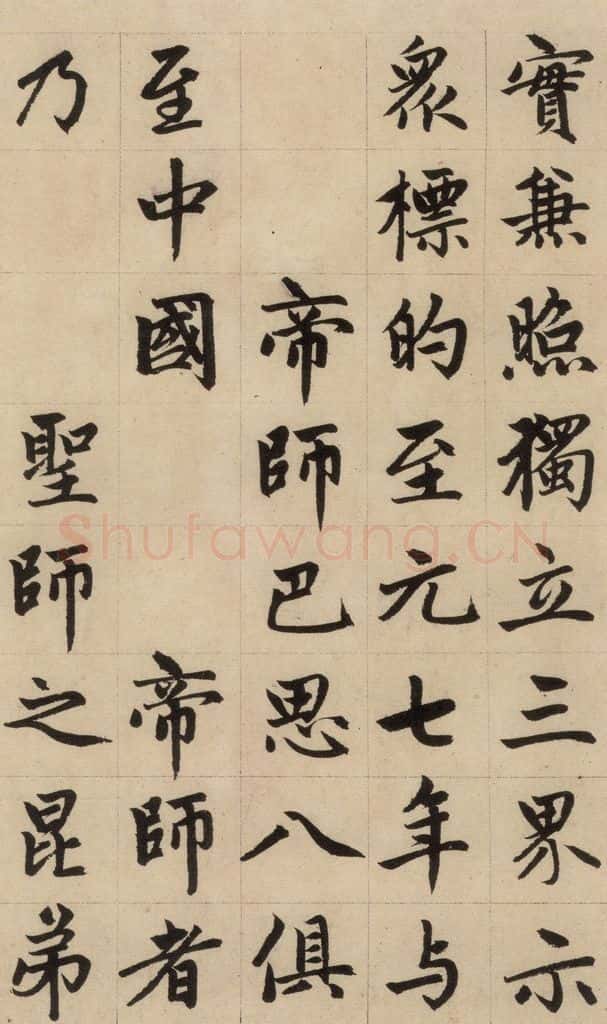 實兼照獨立三界示
衆標的至元七年与
帝師巴思八俱
至中國 帝師者
乃 聖師之昆弟
Shufawang.CN